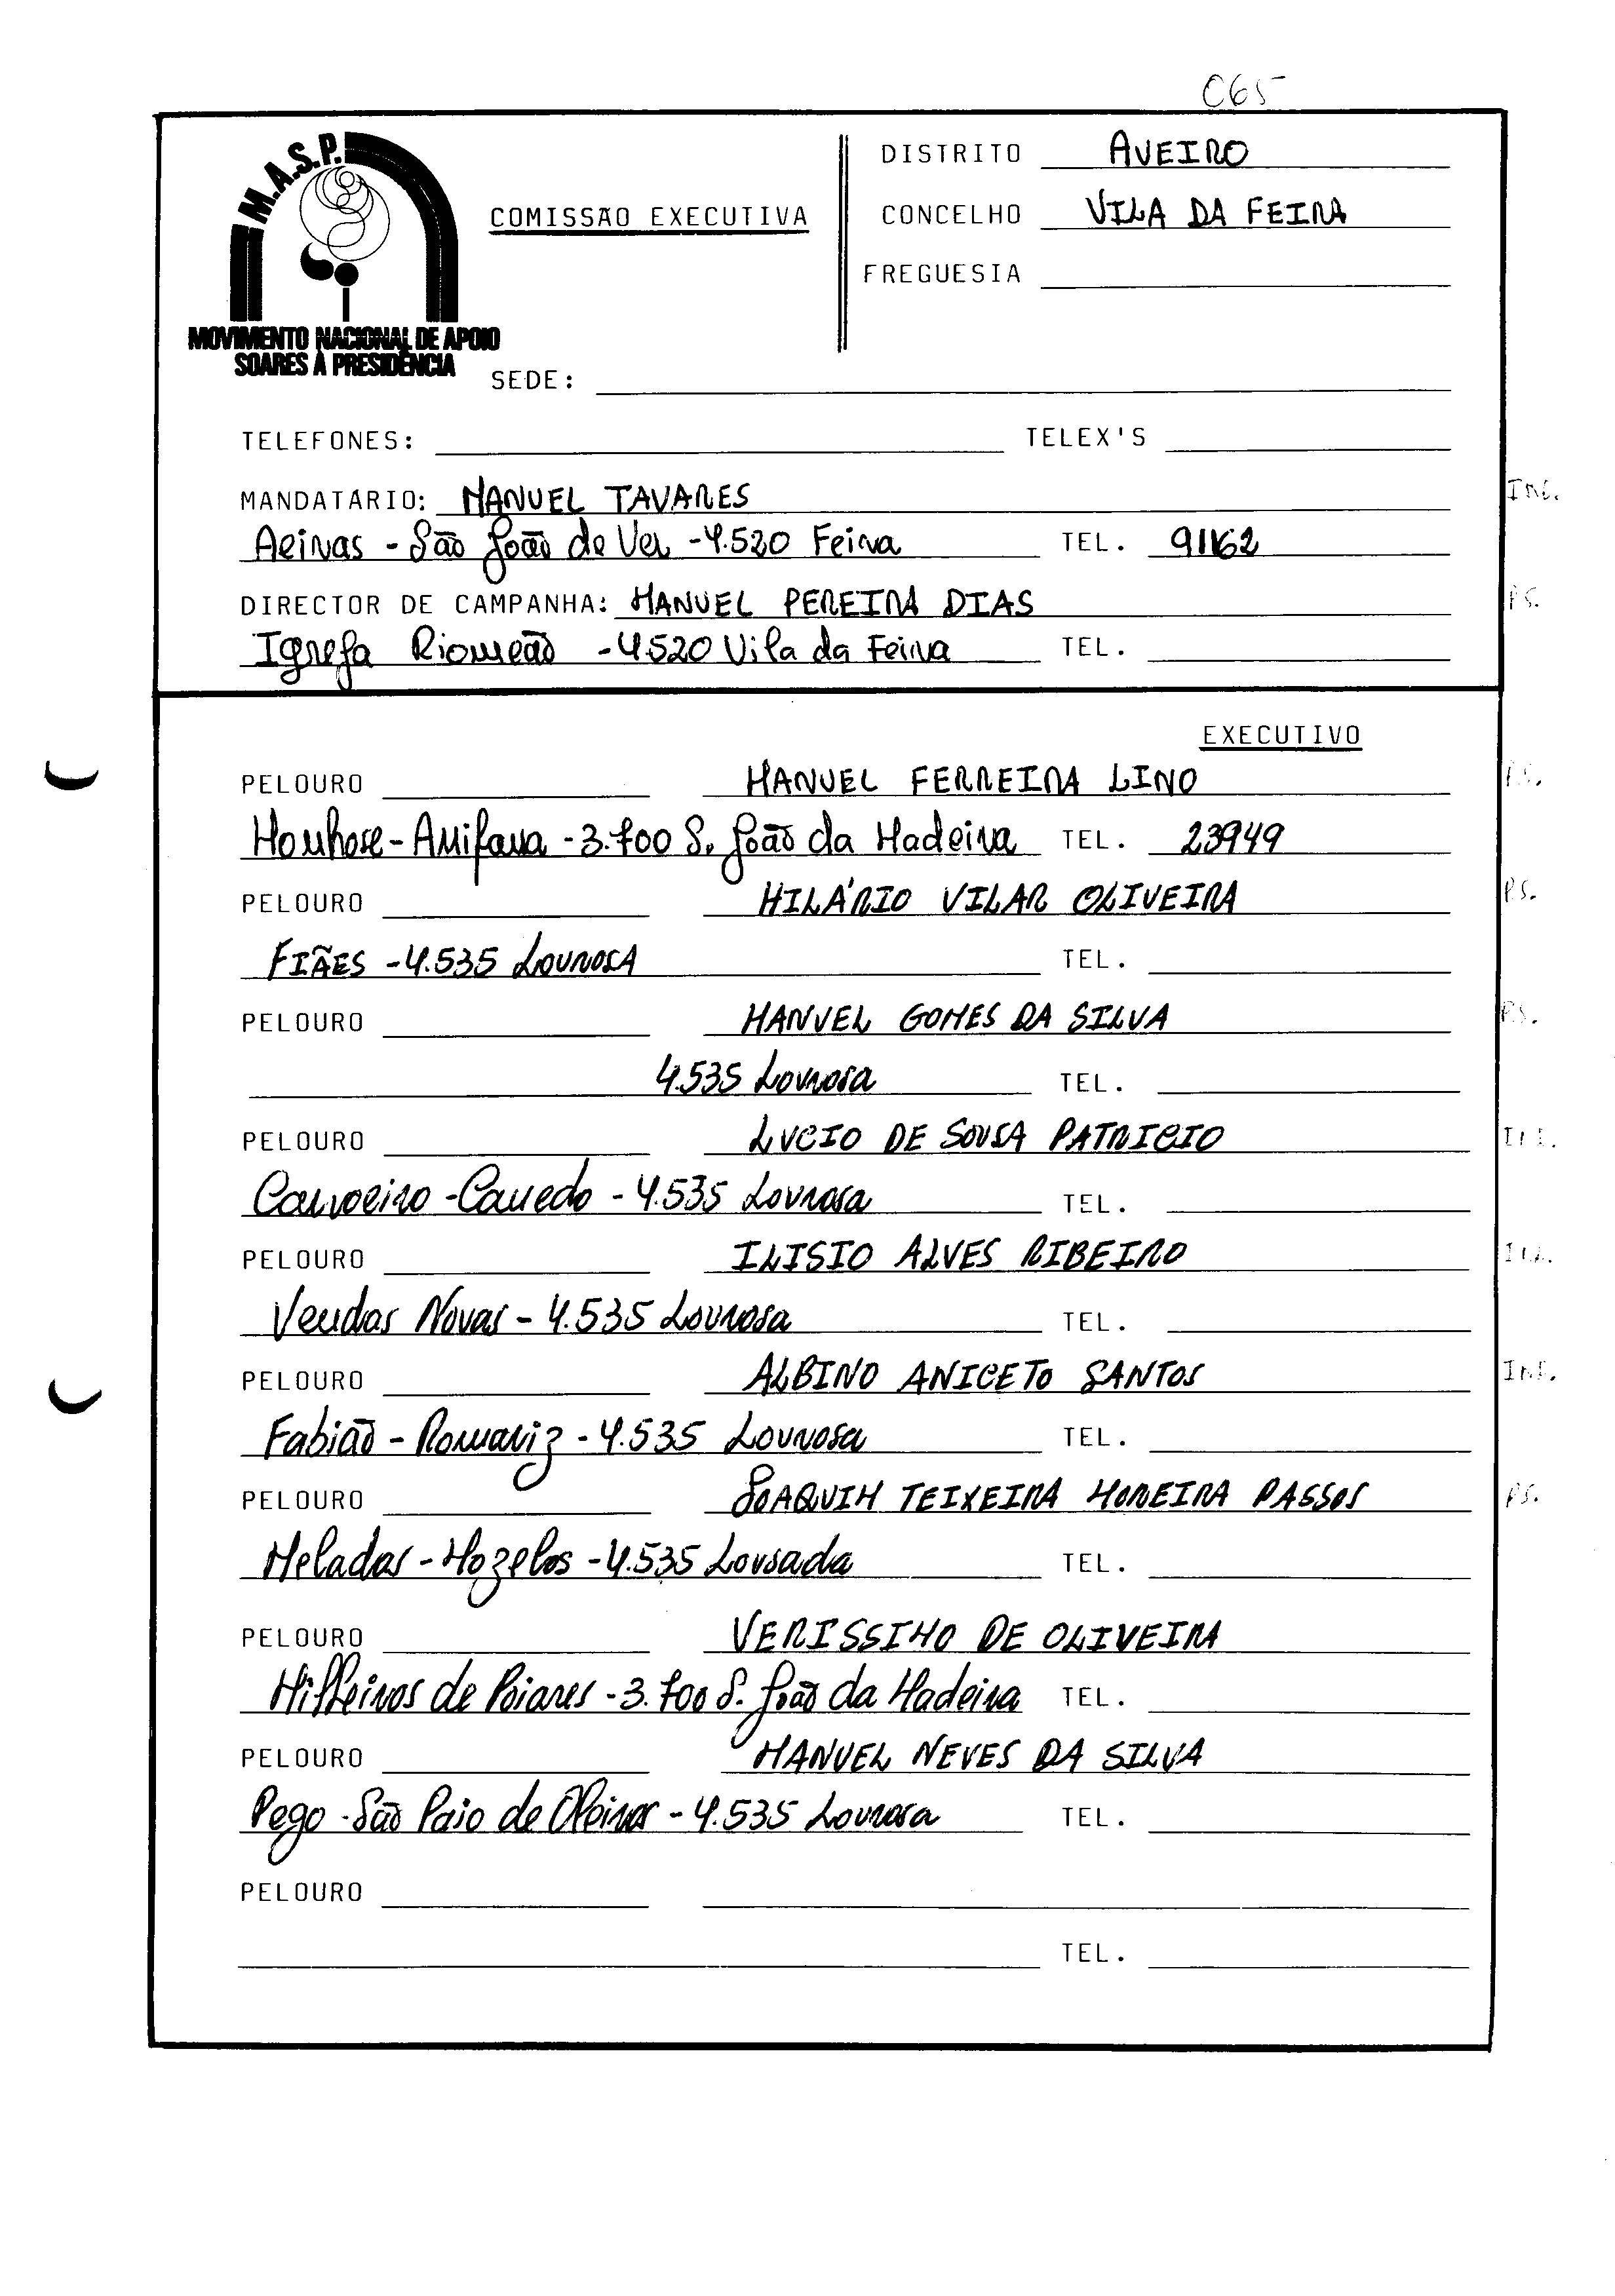 C65
M.A.S.P.
MOVIMENTO NACIONAL DE APOIO
SOARES À PRESIDÊNCIA
COMISSÃO EXECUTIVA
DISTRITO AVEIRO
CONCELHO VILA DA FEIRA
FREGUESIA
SEDE:
TELEFONES: TELEX'S
MANDATÁRIO: MANUEL TAVARES IND.
Aeiras - São João de Ver - 4.520 Feira TEL. 91162
DIRECTOR DE CAMPANHA: MANUEL PEREIRA DIAS P.S.
Igreja Riomeão - 4520 Vila da Feira TEL.
EXECUTIVO
PELOURO MANUEL FERREIRA LINO P.S.
Monhose - Arrifana - 3.700 S. João da Madeira TEL. 23949
PELOURO HILÁRIO VILAR OLIVEIRA P.S.
FIÃES - 4.535 LOUROSA TEL.
PELOURO MANUEL GOMES DA SILVA P.S.
4.535 Lourosa TEL.
PELOURO LUCIO DE SOUSA PATRICIO IND.
Carvoeiro - Canedo - 4.535 Lourosa TEL.
PELOURO ILISIO ALVES RIBEIRO IND.
Vendas Novas - 4.535 Lourosa TEL.
PELOURO ALBINO ANICETO SANTOS IND.
Fabião - Romariz - 4.535 Lourosa TEL.
PELOURO JOAQUIM TEIXEIRA MOREIRA PASSOS P.S.
Meladas - Mozelos - 4.535 Lousada TEL.
PELOURO VERISSIMO DE OLIVEIRA
Milheiros de Poiares - 3.700 S. João da Madeira TEL.
PELOURO MANUEL NEVES DA SILVA
Pego - São Paio de Oleiros - 4.535 Lourosa TEL.
PELOURO
TEL.